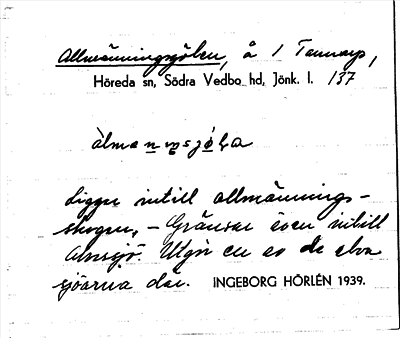 Allmänningsgölen, å 1 Tannarp,
Höreda sn, Södra Vedbo hd, Jönk. l. 137
Ligger intill allmännings-
skogen, – Gränsar även intill
Utgör en av de elva
sjöarna där. INGEBORG HÖRLÉN 1939.